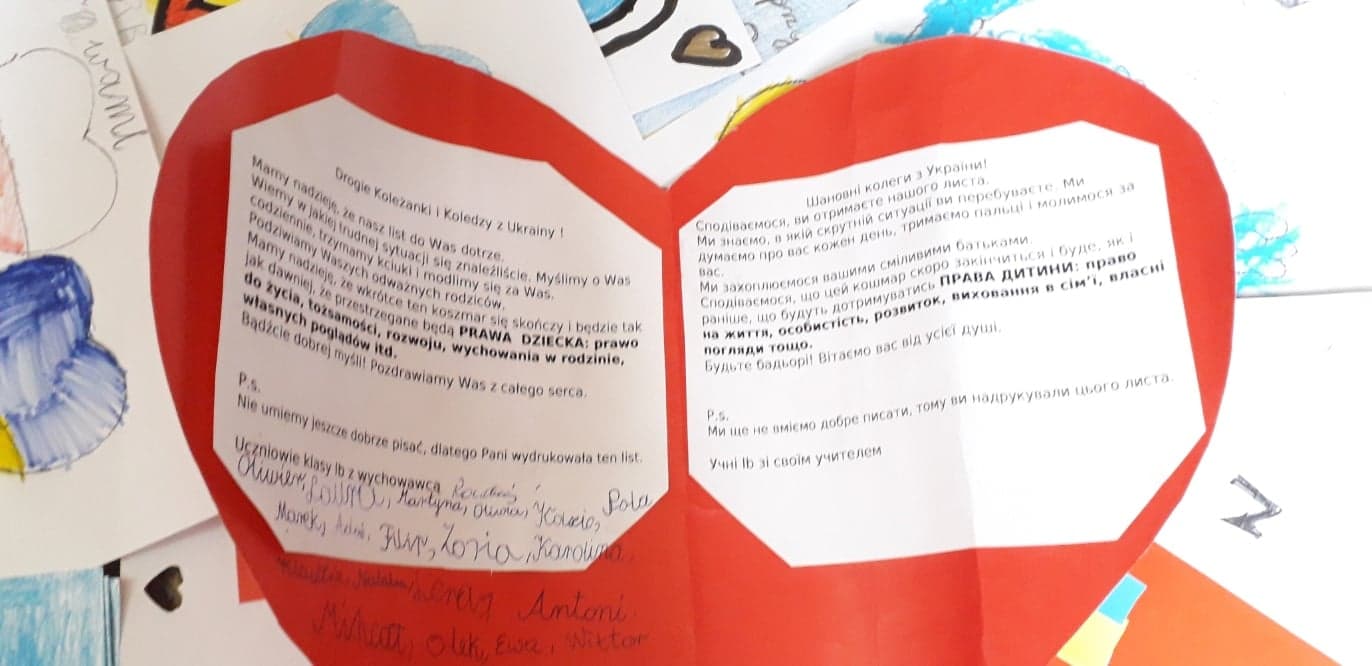 wami
Drogie Koleżanki i Koledzy z Ukrainy !
Mamy nadzieję, że nasz list do Was dotrze.
Wiemy w jakiej trudnej sytuacji się znaleźliście. Myślimy o Was
codziennie, trzymamy kciuki i modlimy się za Was.
Podziwiamy Waszych odważnych rodziców.
Mamy nadzieję, że wkrótce ten koszmar się skończy i będzie tak
jak dawniej, że przestrzegane będą PRAWA DZIECKA: prawo
do życia, tożsamości, rozwoju, wychowania w rodzinie,
własnych poglądów itd.
Bądźcie dobrej myśli! Pozdrawiamy Was z całego serca.
P.s.
Nie umiemy jeszcze dobrze pisać, dlatego Pani wydrukowała ten list.
Uczniowie klasy Ib z wychowawcą
Oliwier, Laura, Martyna, Oliwia, Pola
Marek, Filip, Zosia, Karolina
Antoni
Michał, Olek, Ewa, Wiktor
Шановні колеги з України!
Сподіваємося, ви отримаєте нашого листа.
Ми знаємо, в якій скрутній ситуації ви перебуваєте. Ми
думаємо про вас кожен день, тримаємо пальці і молимося за
вас.
Ми захоплюємося вашими сміливими батьками.
Сподіваємося, що цей кошмар скоро закінчиться і буде, як і
раніше, що будуть дотримуватись ПРАВА ДИТИНИ: право
на життя, особистість, розвиток, виховання в сім'ї, власні
погляди тощо.
Будьте бадьорі! Вітаємо вас від усієї душі.
P.s.
Ми ще не вміємо добре писати, тому ви надрукували цього листа.
Учні Ib зі своїм учителем
N